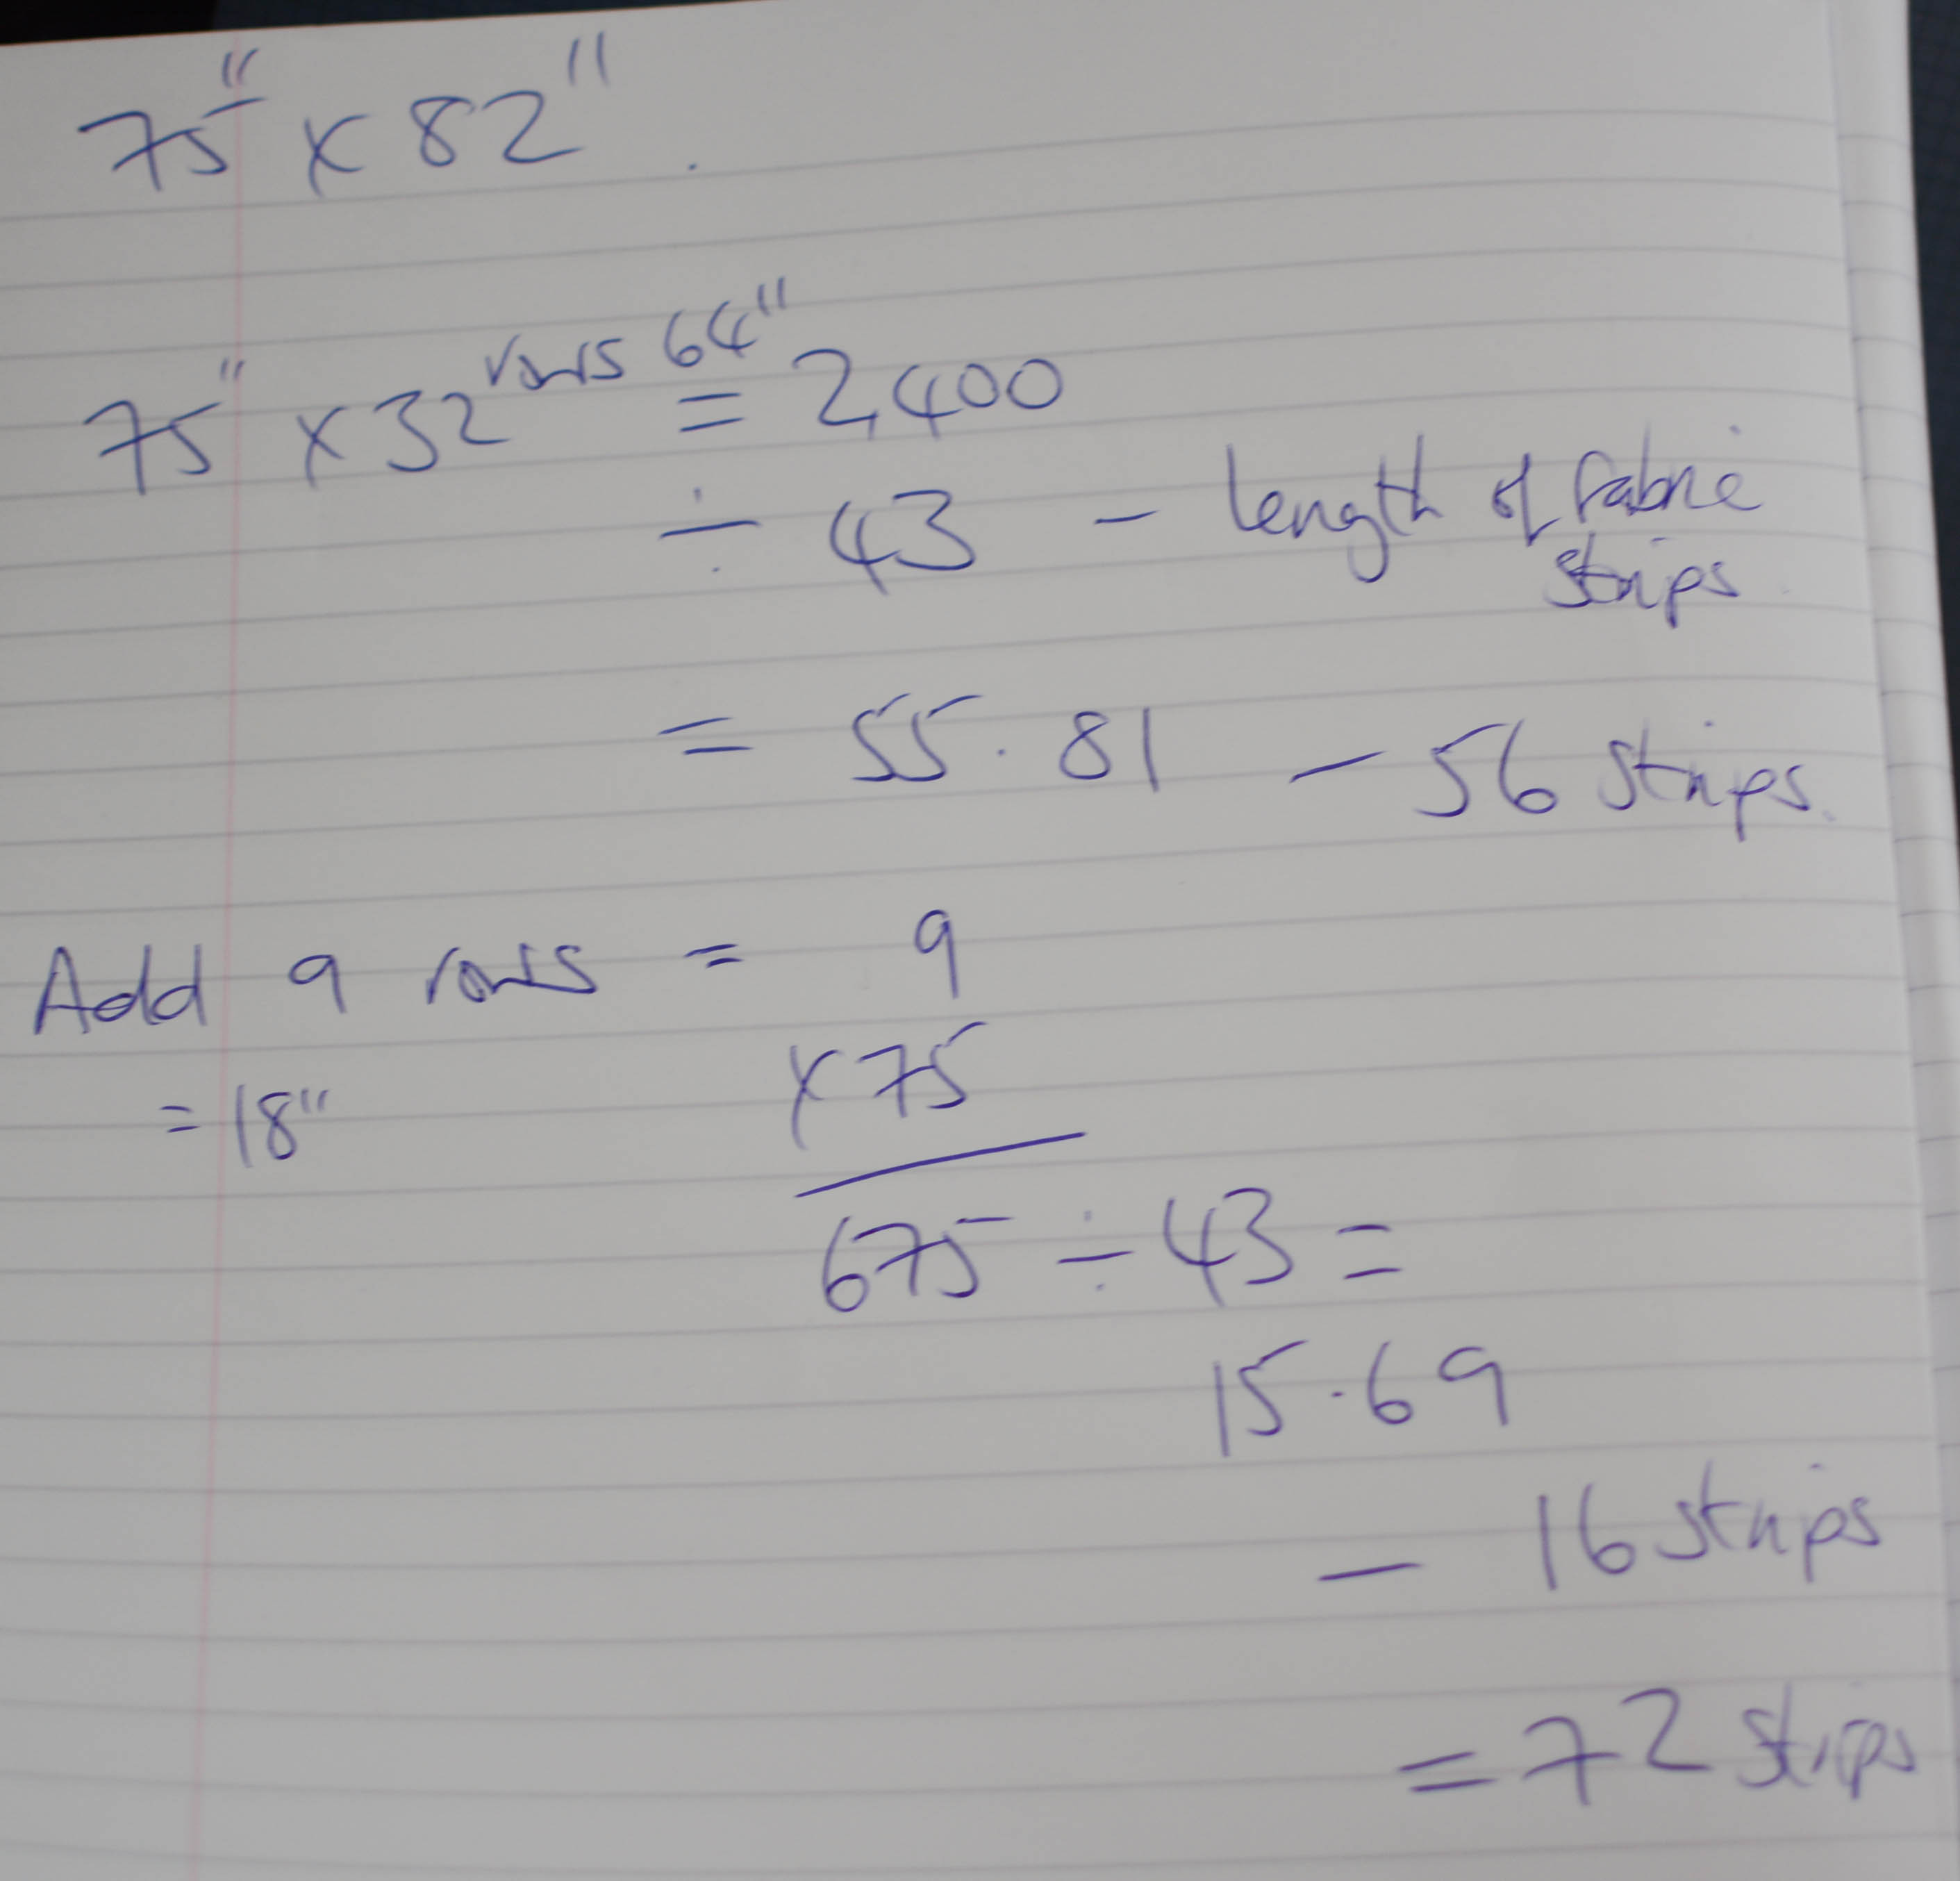 75" x 82" .
75" x 32 rows 64" = 2400
÷ 43 - length of fabric
strips
= 55.81 - 56 strips.
Add 9 rows = 9
= 18" x 75
675 ÷ 43 =
15.69
- 16 strips
= 72 strips